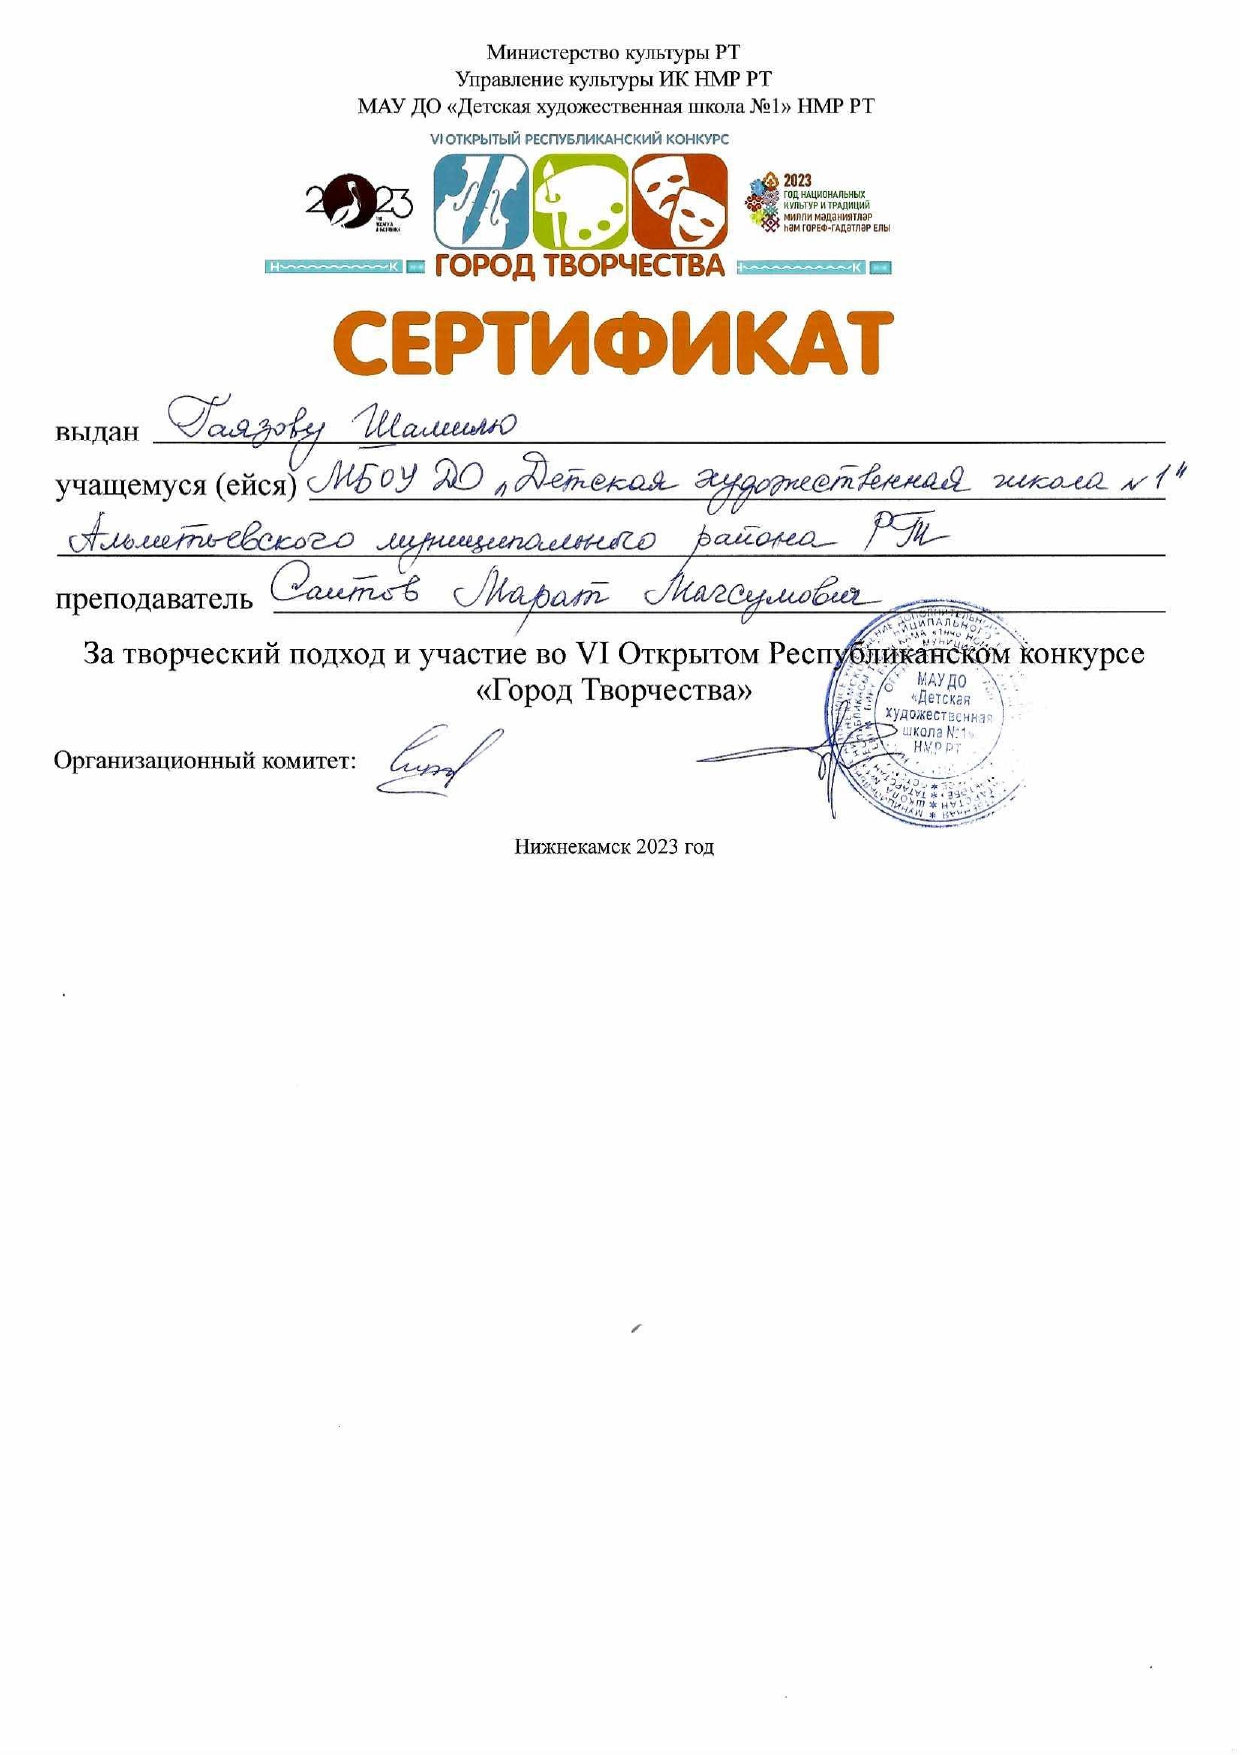 Министерство культуры РТ
Управление культуры ИК НМР РТ
МАУ ДО «Детская художественная школа №1» НМР РТ
VI ОТКРЫТЫЙ РЕСПУБЛИКАНСКИЙ КОНКУРС
2023
2023
ГОД НАЦИОНАЛЬНЫХ
КУЛЬТУР И ТРАДИЦИЙ
МИЛЛИ МӘДӘНИЯТЛӘР
ҺӘМ ГОРЕФ-ГАДӘТЛӘР ЕЛЫ
Н К ГОРОД ТВОРЧЕСТВА Н К
СЕРТИФИКАТ
выдан Гаязову Шамилю
учащемуся (ейся) МБОУ ДО „Детская художественная школа №1"
Альметьевского муниципального района РТ
преподаватель Саитов Марат Магсумович
За творческий подход и участие во VI Открытом Республиканском конкурсе
«Город Творчества»
МАУ ДО
«Детская
художественная
школа №1»
НМР РТ
Организационный комитет:
Нижнекамск 2023 год